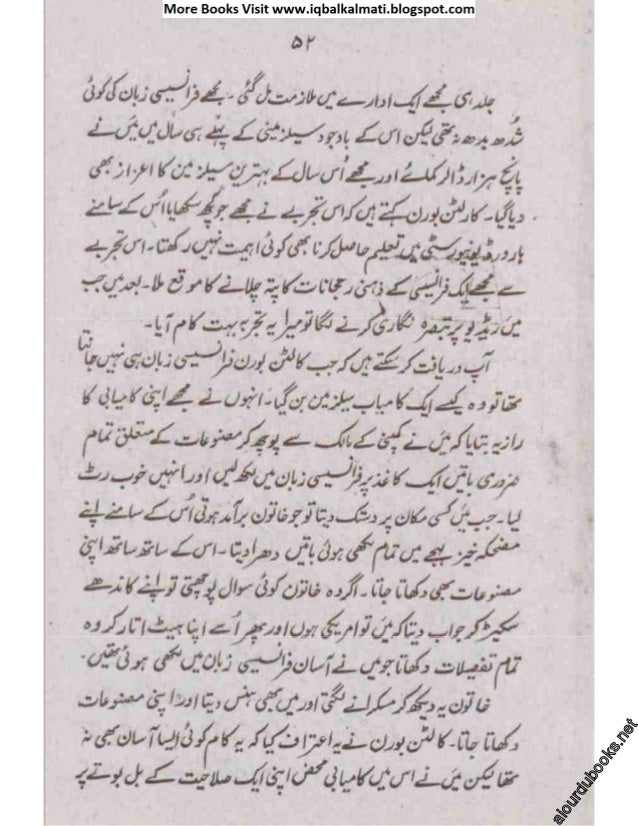 More Books Visit www.iqbalkalmati.blogspot.com
۵۲
جلد ہی مجھے ایک ادارے میں ملازمت مل گئی۔ مجھے فرانسیسی زبان کی کوئی
شُدھ بدھ نہ تھی لیکن اس کے باوجود سیلز مینی کے پہلے ہی سال میں میَں نے
پانچ ہزار ڈالر کمائے اور مجھے اُس سال کے بہترین سیلز مین کا اعزاز بھی
دیا گیا۔ کارلٹن بورن کہتے ہیں کہ اس تجربے نے مجھے جو کچھ سکھایا اُس کے سامنے
ہارورڈ یونیورسٹی میں تعلیم حاصل کرنا بھی کوئی اہمیت نہیں رکھتا۔ اس تجربے
سے مجھے ایک فرانسیسی کے ذہنی رحجانات کا پتہ چلانے کا موقع ملا۔ بعد میں جب
میں ریڈیو پر تبصرہ نگاری کرنے لگا تو میرا یہ تجربہ بہت کام آیا۔
آپ دریافت کر سکتے ہیں کہ جب کالٹن بورن فرانسیسی زبان ہی نہیں جانتا
تھا تو وہ کیسے ایک کامیاب سیلز مین بن گیا۔ انہوں نے مجھے اپنی کامیابی کا
راز یہ بتایا کہ میَں نے کمپنی کے مالک سے پوچھ کر مصنوعات کے متعلق تمام
ضروری باتیں ایک کاغذ پر فرانسیسی زبان میں لکھ لیں اور انہیں خوب رٹ
لیا۔ جب میَں کسی مکان پر دستک دیتا تو جو خاتون برآمد ہوتی اُس کے سامنے اپنے
مضحکہ خیز لہجے میں تمام لکھی ہوئی باتیں دھرا دیتا۔ اس کے ساتھ ساتھ اپنی
مصنوعات بھی دکھاتا جاتا۔ اگر وہ خاتون کوئی سوال پوچھتی تو اپنے کاندھے
سکیڑ کر جواب دیتا کہ میَں تو امریکی ہوں اور پھر اُسے اپنا ہیٹ اتار کر وہ
تمام تفصیلات دکھاتا جو میں نے آسان فرانسیسی زبان میں لکھی ہوئی تھیں۔
خاتون یہ دیکھ کر مسکرانے لگتی اور میں بھی ہنس دیتا اور اپنی مصنوعات
دکھاتا جاتا۔ کالٹن بورن نے یہ اعتراف کیا کہ یہ کام کوئی ایسا آسان بھی نہ
تھا لیکن میَں نے اس میں کامیابی محض اپنی ایک صلاحیت کے بل بوتے پر
alourdubooks.net